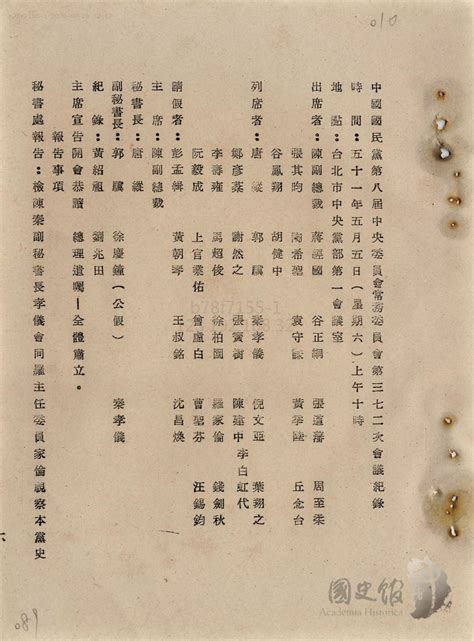 010
中國國民黨第八屆中央委員會常務委員會第三七二次會議紀錄
時間：五十一年五月五日（星期六）上午十時
地點：台北市中央黨部第一會議室
出席者：陳副總裁 蔣經國 谷正綱 張道藩 周至柔
張其昀 陶希聖 袁守謙 黃季陸 丘念台
谷鳳翔 胡健中
列席者：唐縱 郭驥 秦孝儀 倪文亞 葉翔之
鄭彥棻 謝然之 張寶樹 陳建中李白虹代
李壽雍 馬超俊 徐柏園 羅家倫 錢劍秋
阮毅成 上官業佑 曾虛白 曹聖芬 汪錫鈞
請假者：彭孟緝 黃朝琴 王叔銘 沈昌煥
主席：陳副總裁
秘書長：唐縱
副秘書長：郭驥 徐慶鐘（公假） 秦孝儀
紀錄：黃紹祖 劉兆田
主席宣告開會恭讀 總理遺囑—全體肅立。
報告事項
秘書處報告：檢陳秦副秘書長孝儀會同羅主任委員家倫視察本黨史
六
089
國史館
Academia Historica